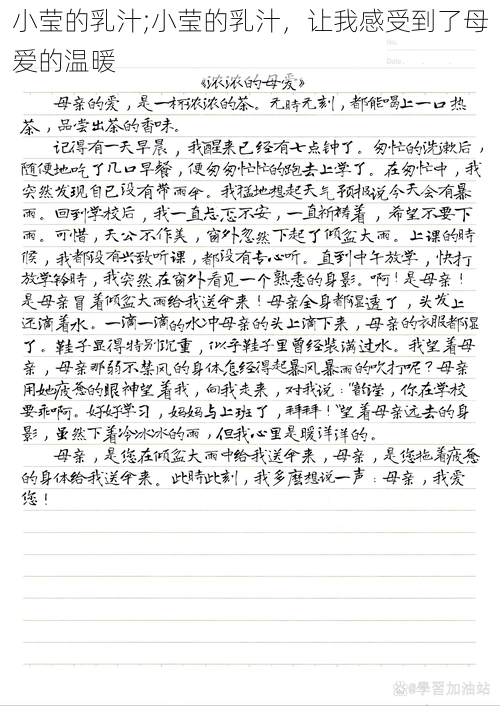 小莹的乳汁;小莹的乳汁，让我感受到了母
爱的温暖
No.
Date
《浓浓的母爱》
母亲的爱，是一杯浓浓的茶。无時无刻，都能喝上一口热
茶，品尝出茶的香味。
记得有一天早晨，我醒来已经有七点钟了。匆忙的洗漱后，
随便地吃了几口早餐，便匆匆忙忙的跑去上学了。在匆忙中，我
突然发现自己没有带雨伞。我猛地想起天气预报说今天会有暴
雨。回到学校后，我一直忐忑不安，一直祈祷着，希望不要下
雨。可惜，天公不作美，窗外忽然下起了倾盆大雨。上课的時
候，我都没有兴致听课，都没有专心听。直到中午放学，快打
放学铃時，我突然在窗外看见一个熟悉的身影。啊！是母亲！
是母亲冒着倾盆大雨给我送伞来！母亲全身都湿透了，头发上
还滴着水。一滴一滴的水冲母亲的头上滴下来，母亲的衣服都湿
了。鞋子显得特别沉重，似乎鞋子里曾经装满过水。我望着母
亲，母亲那弱不禁风的身体怎经得起暴风暴雨的吹打呢？母亲
用她疲惫的眼神望着我，向我走来，对我说：“韵莹，你在学校
要乖啊。好好学习，妈妈去上班了，拜拜！”望着母亲远去的身
影，虽然下着冷冰冰的雨，但我心里是暖洋洋的。
母亲，是您在倾盆大雨中给我送伞来，母亲，是您拖着疲惫
的身体给我送伞来。此時此刻，我多麽想说一声：母亲，我爱
您！
@學習加油站